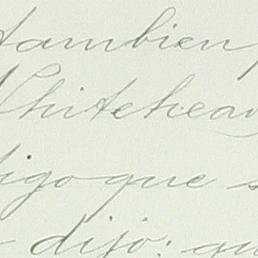 tambien
Whitehead
digo que s
dijo: qu